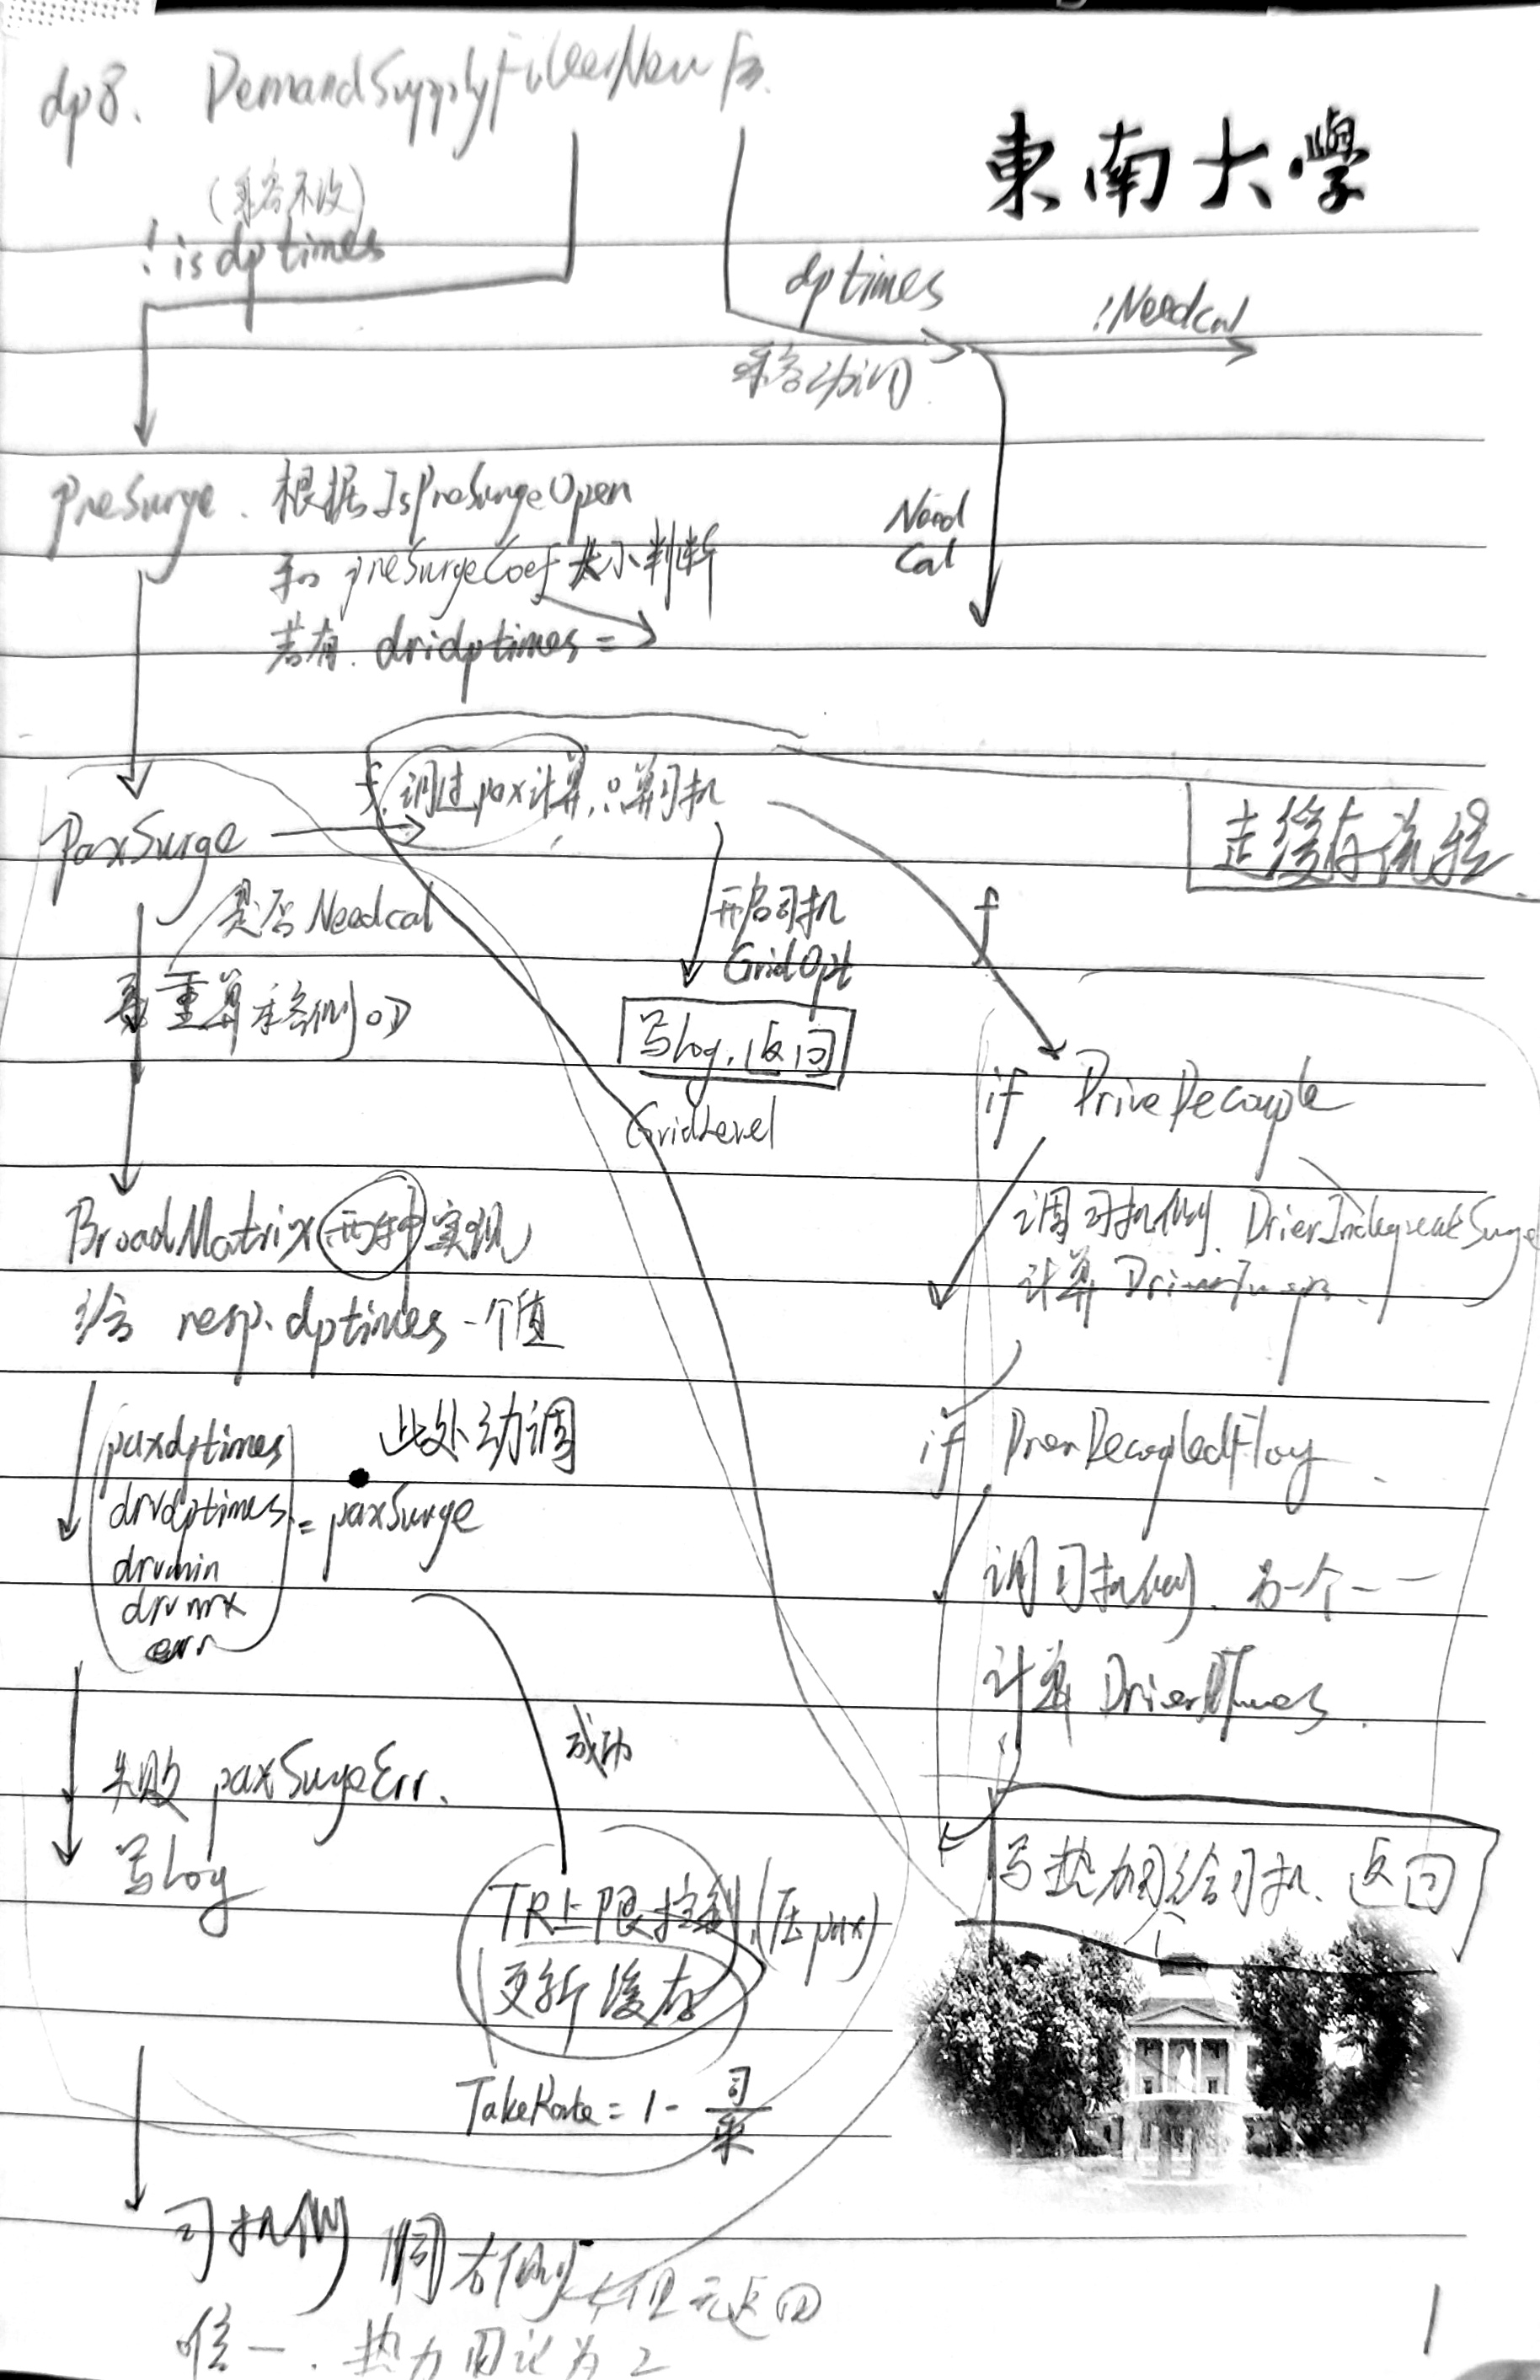 dp8. DemandSupplyFilterNew
東南大學
(乘客不改)
! isdptimes
dptimes
!Needcal
PreSurge. 根据IsPreSurgeOpen
和 preSurgeCoef 大小判断
若有. dridptimes =
Need
Cal
f. 调过pax计算.只算司机
走缓存流程
PaxSurge
是否Needcal
重算乘客侧
开启司机
GridOpt
f
写log.返回
GridLevel
if
BroadMatrix 两种实现
调司机侧.
计算
给 resp.dptimes 一个值
paxdptimes
drvdptimes
drvmin
drvmax
err
= paxSurge
此处动调
if
调司机侧. 另一个--
计算
失败 paxSurgeErr.
写log
成功
TR上限控制.(压pax)
更新缓存
写热力图给司机. 返回
TakeRate = 1 - 司/乘
司机侧 同右侧
但无返回
唯一. 热力图设为2
1